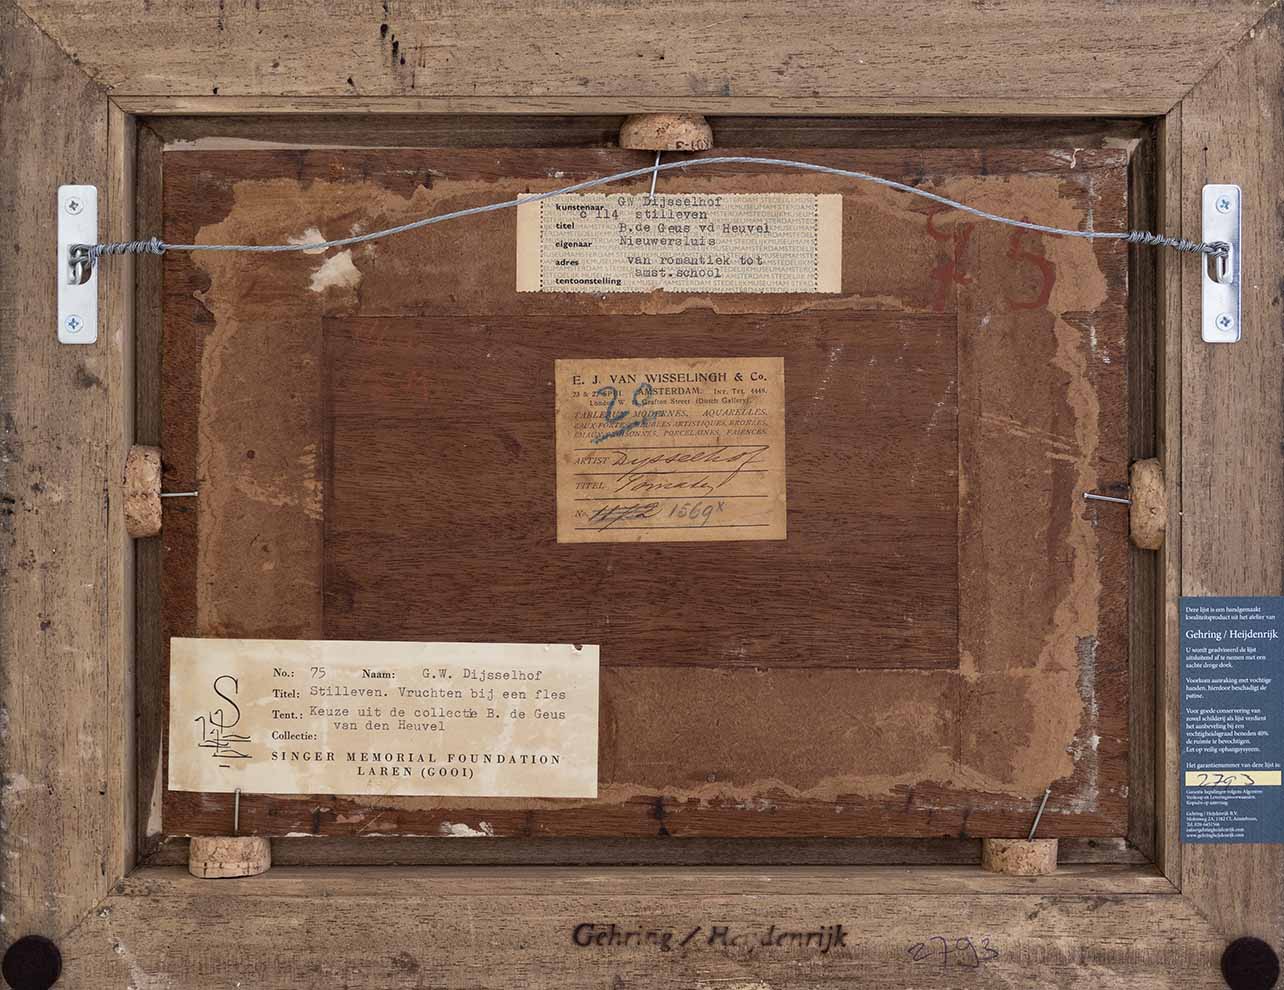 E-103
kunstenaar GW Dijsselhof
c 114 stilleven
titel B.de Geus vd Heuvel
eigenaar Nieuwersluis
adres van romantiek tot
amst.school
tentoonstelling
75
E. J. VAN WISSELINGH & Co.
AMSTERDAM. Int. Tel. 4448.
London W. Grafton Street (Dutch Gallery).
TABLEAUX MODERNES, AQUARELLES,
EAUX-FORTES, MEUBLES ARTISTIQUES, BRODRIES,
EMAUX CLOISONNES, PORCELAINES, FAIENCES.
ARTIST Dijsselhof
TITEL Tomaten
No. 1569x
No.: 75 Naam: G.W. Dijsselhof
Titel: Stilleven. Vruchten bij een fles
Tent.: Keuze uit de collectie B. de Geus
van den Heuvel
Collectie:
SINGER MEMORIAL FOUNDATION
LAREN (GOOI)
Deze lijst is een handgemaakt
kwaliteitsproduct uit het atelier van
Gehring / Heijdenrijk
U wordt geadviseerd de lijst
uitsluitend af te nemen met een
zachte droge doek.
Voorkom aanraking met vochtige
handen, hierdoor beschadigt de
patine.
Voor goede conservering van
zowel schilderij als lijst verdient
het aanbeveling bij een
vochtigheidsgraad beneden 40%
de ruimte te bevochtigen.
Let op veilig ophangsysteem.
Het garantienummer van deze lijst is:
2793
Garantie bepalingen volgens Algemene
Verkoop en Leveringsvoorwaarden.
Kopie op aanvraag.
Gehring / Heijdenrijk B.V.
www.gehringheijdenrijk.com
Gehring / Heijdenrijk
2793